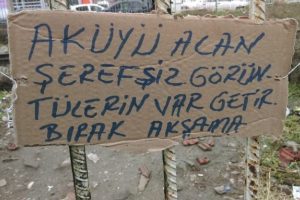 AKÜYÜ ALAN
ŞEREFŞİZ GÖRÜN
TÜLERİN VAR GETİR
BIRAK AKŞAMA